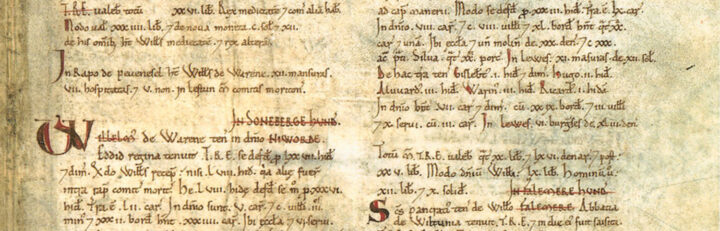 T.R.E. ualeb totū xx.vi. lib. Rex medietatē 7 com̃ aliā hab̃.
Modo ual xxx.iiii. lib. 7 de noua moneta c. sol 7 xii.
de his om̃ib; ht̃ Witts medietatē. 7 rex alterā.
In Rapo de peuenesel ht̃ Witts de Warene .xii. mansuras.
vii. hospitatas. 7 v. non.
In Soneberge hund.
Willelm̃ de Warene ten in dñio Niworde.
Eddid regina tenuit. T.R.E. se defd̃ p hid̃
7 dim̃. Xdo Witts recep̃. nisi L.viii. hid̃. q̃a alie fuer̃
intra rap̃ comit̃ morit̃. He L.viii. hide defd̃ se m̊ p xxxvi.
hid̃. Tr̃a .ē. L.ii. car̃. In dñio sunt .v. car̃. 7 c. uitti .iii.
min̄ 7 xxx.ii. bord̃ hñt .xxx.iiii. car̃. Ibi eccla 7 vi. serui.
ad cap̃ manerii. Modo se defd̃ p xxx.iii. hid̃. Tr̃a .ē. lx. car̃.
In dñio .viii. car̃. 7 c. uitti 7 bord̃ hñt
car̃ 7 una. Ibi eccla 7 un̄ molin̄ de .xx. den̄. 7 c xxx.
ac̄ p̃ti. Silua xx. porc̃. In Lewes .xi. masuras de .xx. sol.
De hac tr̃a ten Gislebt̃ .i. hid̃ 7 dim̃. Hugo .ii. hid̃.
Aluuard .iii. hid̃. Warin̄ .iii. hid̃. Ricard̃ .i. hid̃.
In dñio hñt .vii. car̃ 7 dim̃. 7 .iii. uitti
7 x. serui. cū .iii. car̃. In Lewes .vi. burg̃ses de .xl.iii. den̄.
Totū m̃ T.R.E. ualeb lib. 7 lx.vi. denar̃. 7 post
xx.v. lib. Modo dñiū Witti .lx. lib. Hominū ū
xii. lib. 7 x. solid̃.
In Falemere hund
Scs pancrati ten de Witto Falemere. Abbatia
de Wiltunia tenuit T.R.E. 7 fuit saisita